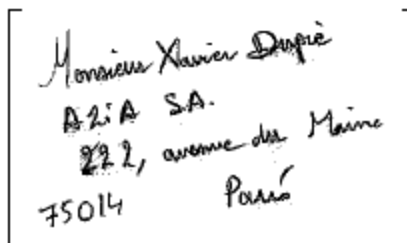 Monsieur Xavier Dupré
A2iA SA.
222, avenue du Maine
75014 Paris